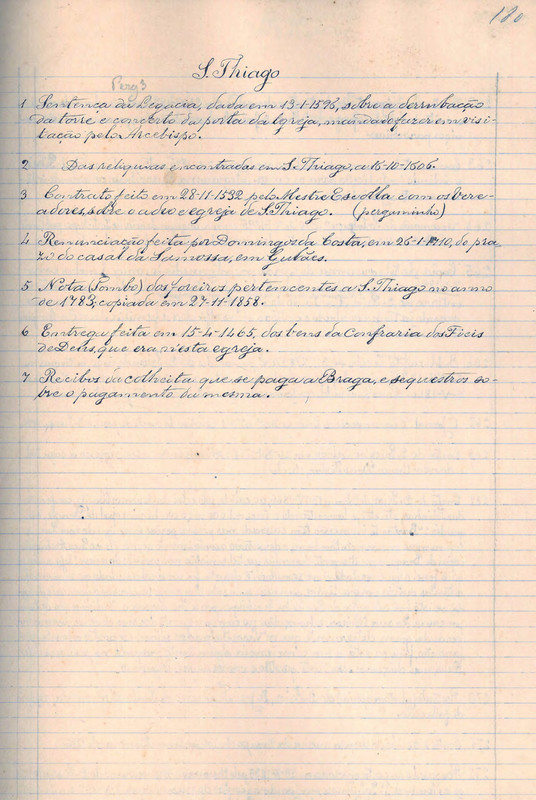 180
S. Thiago
Perg 3
1 Sentença da Legacia, dada em 13-1-1596, sobre a derrubação
da torre e concerto da porta da Egreja, mandado fazer em visi-
tação pelo Arcebispo.
2 Das reliquias encontradas em S. Thiago, a 15-10-1606.
3 Contrato feito em 28-11-1532 pelo Mestre Escolha com os vere-
adores, sobre o adro e egreja de S. Thiago. (pergaminho)
4 Renunciação feita por Domingos da Costa, em 26-1-1710, do pra-
zo do casal da em
5 Nota (Tombo) dos foreiros pertencentes a S. Thiago no anno
de 1783; copiada em 27-11-1858.
6 Entrega feita em 15-4-1465, dos bens da Confraria dos Fieis
de Deus, que era n'esta egreja.
7 Recibos da colheita que se paga a Braga, e sequestros so-
bre o pagamento da mesma.